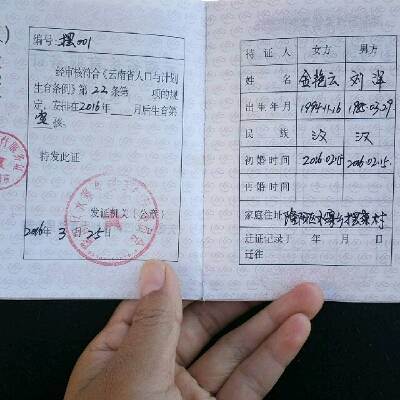 编号:摆001
经审核符合《云南省人口与计划
生育条例》第22条第 项的规
定,安排在2016年 月后生育第
壹孩。
特发此证
发证机关(公章)
2016年3月25日
持证人 女方 男方
姓名 金艳云 刘洋
出生年月 1994.11.16 1985.03.29
民族 汉 汉
初婚时间 2016.02.15 2016.02.15
再婚时间
家庭住址
迁证记录于 年 月 日
迁往